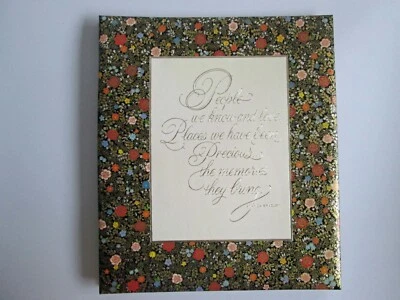 People
we know and love
Places we have been
Precious
the memories
they bring